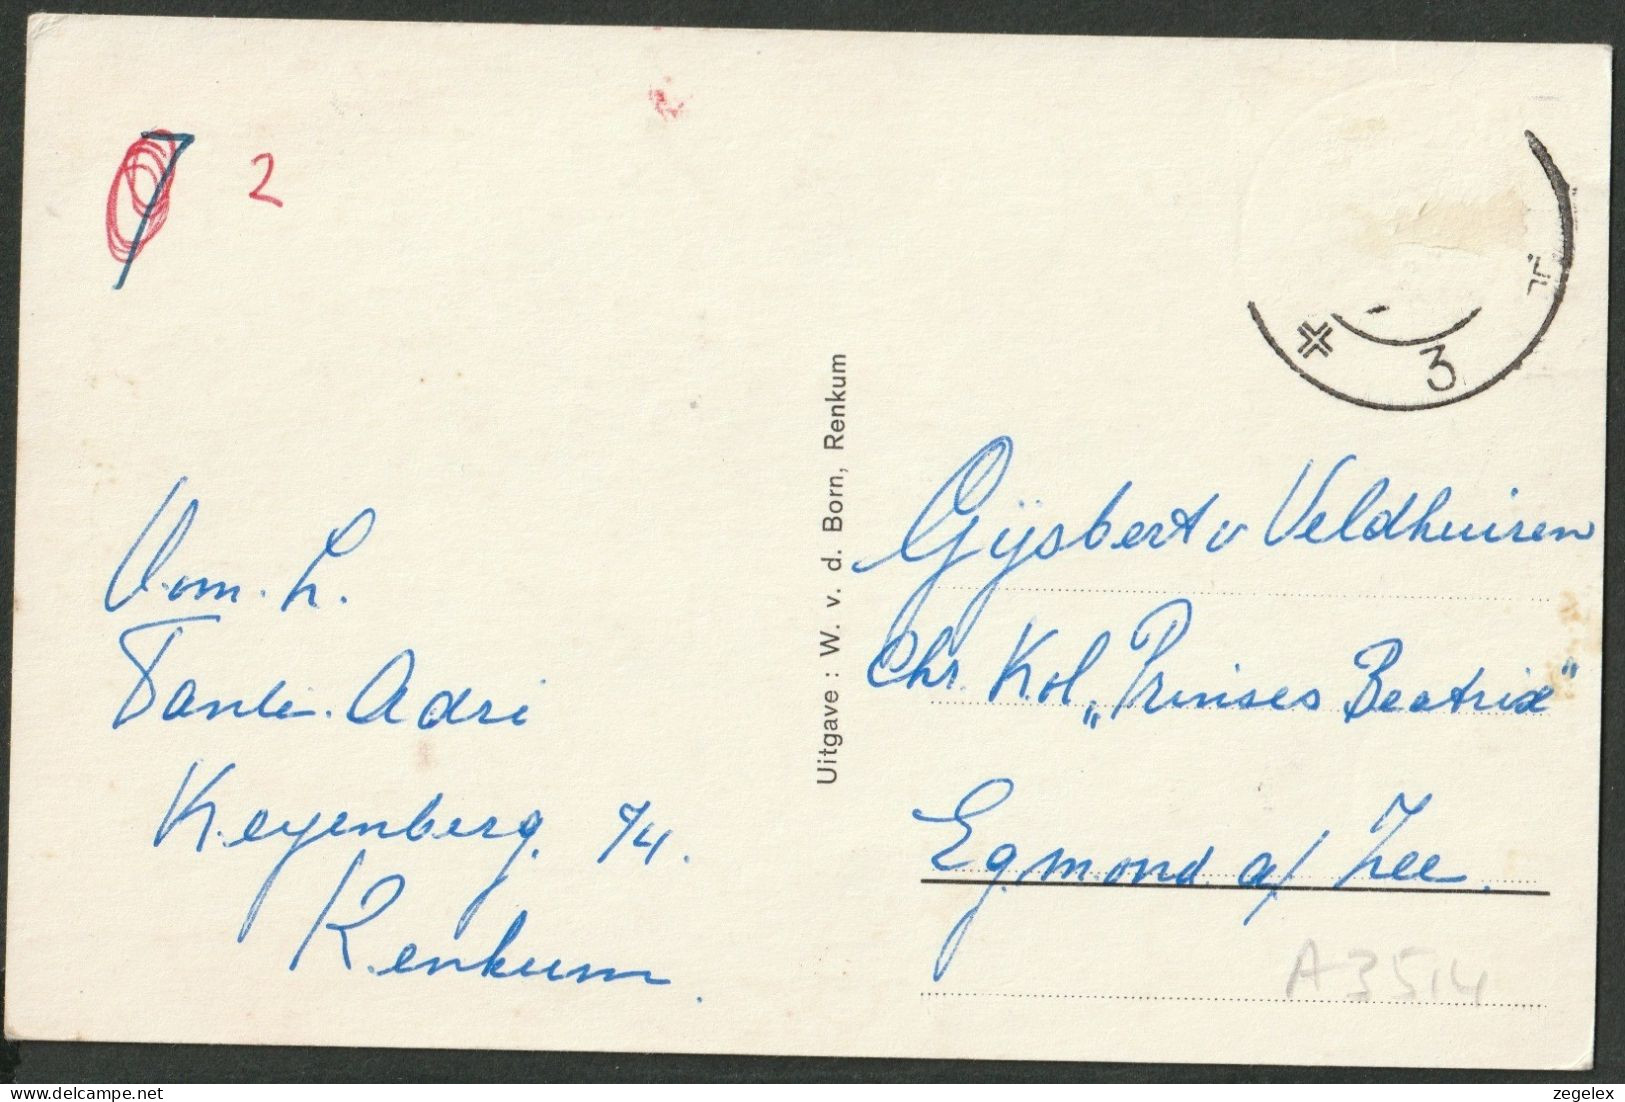 7 2
Oom. L.
Tante Adri
Keyenberg. 74.
Renkum.
Uitgave : W. v. d. Born, Renkum
3
Gijsbert v Veldhuizen
Chr. Kol „Prinses Beatrix"
Egmond a/ Zee.
A3514
zegelex